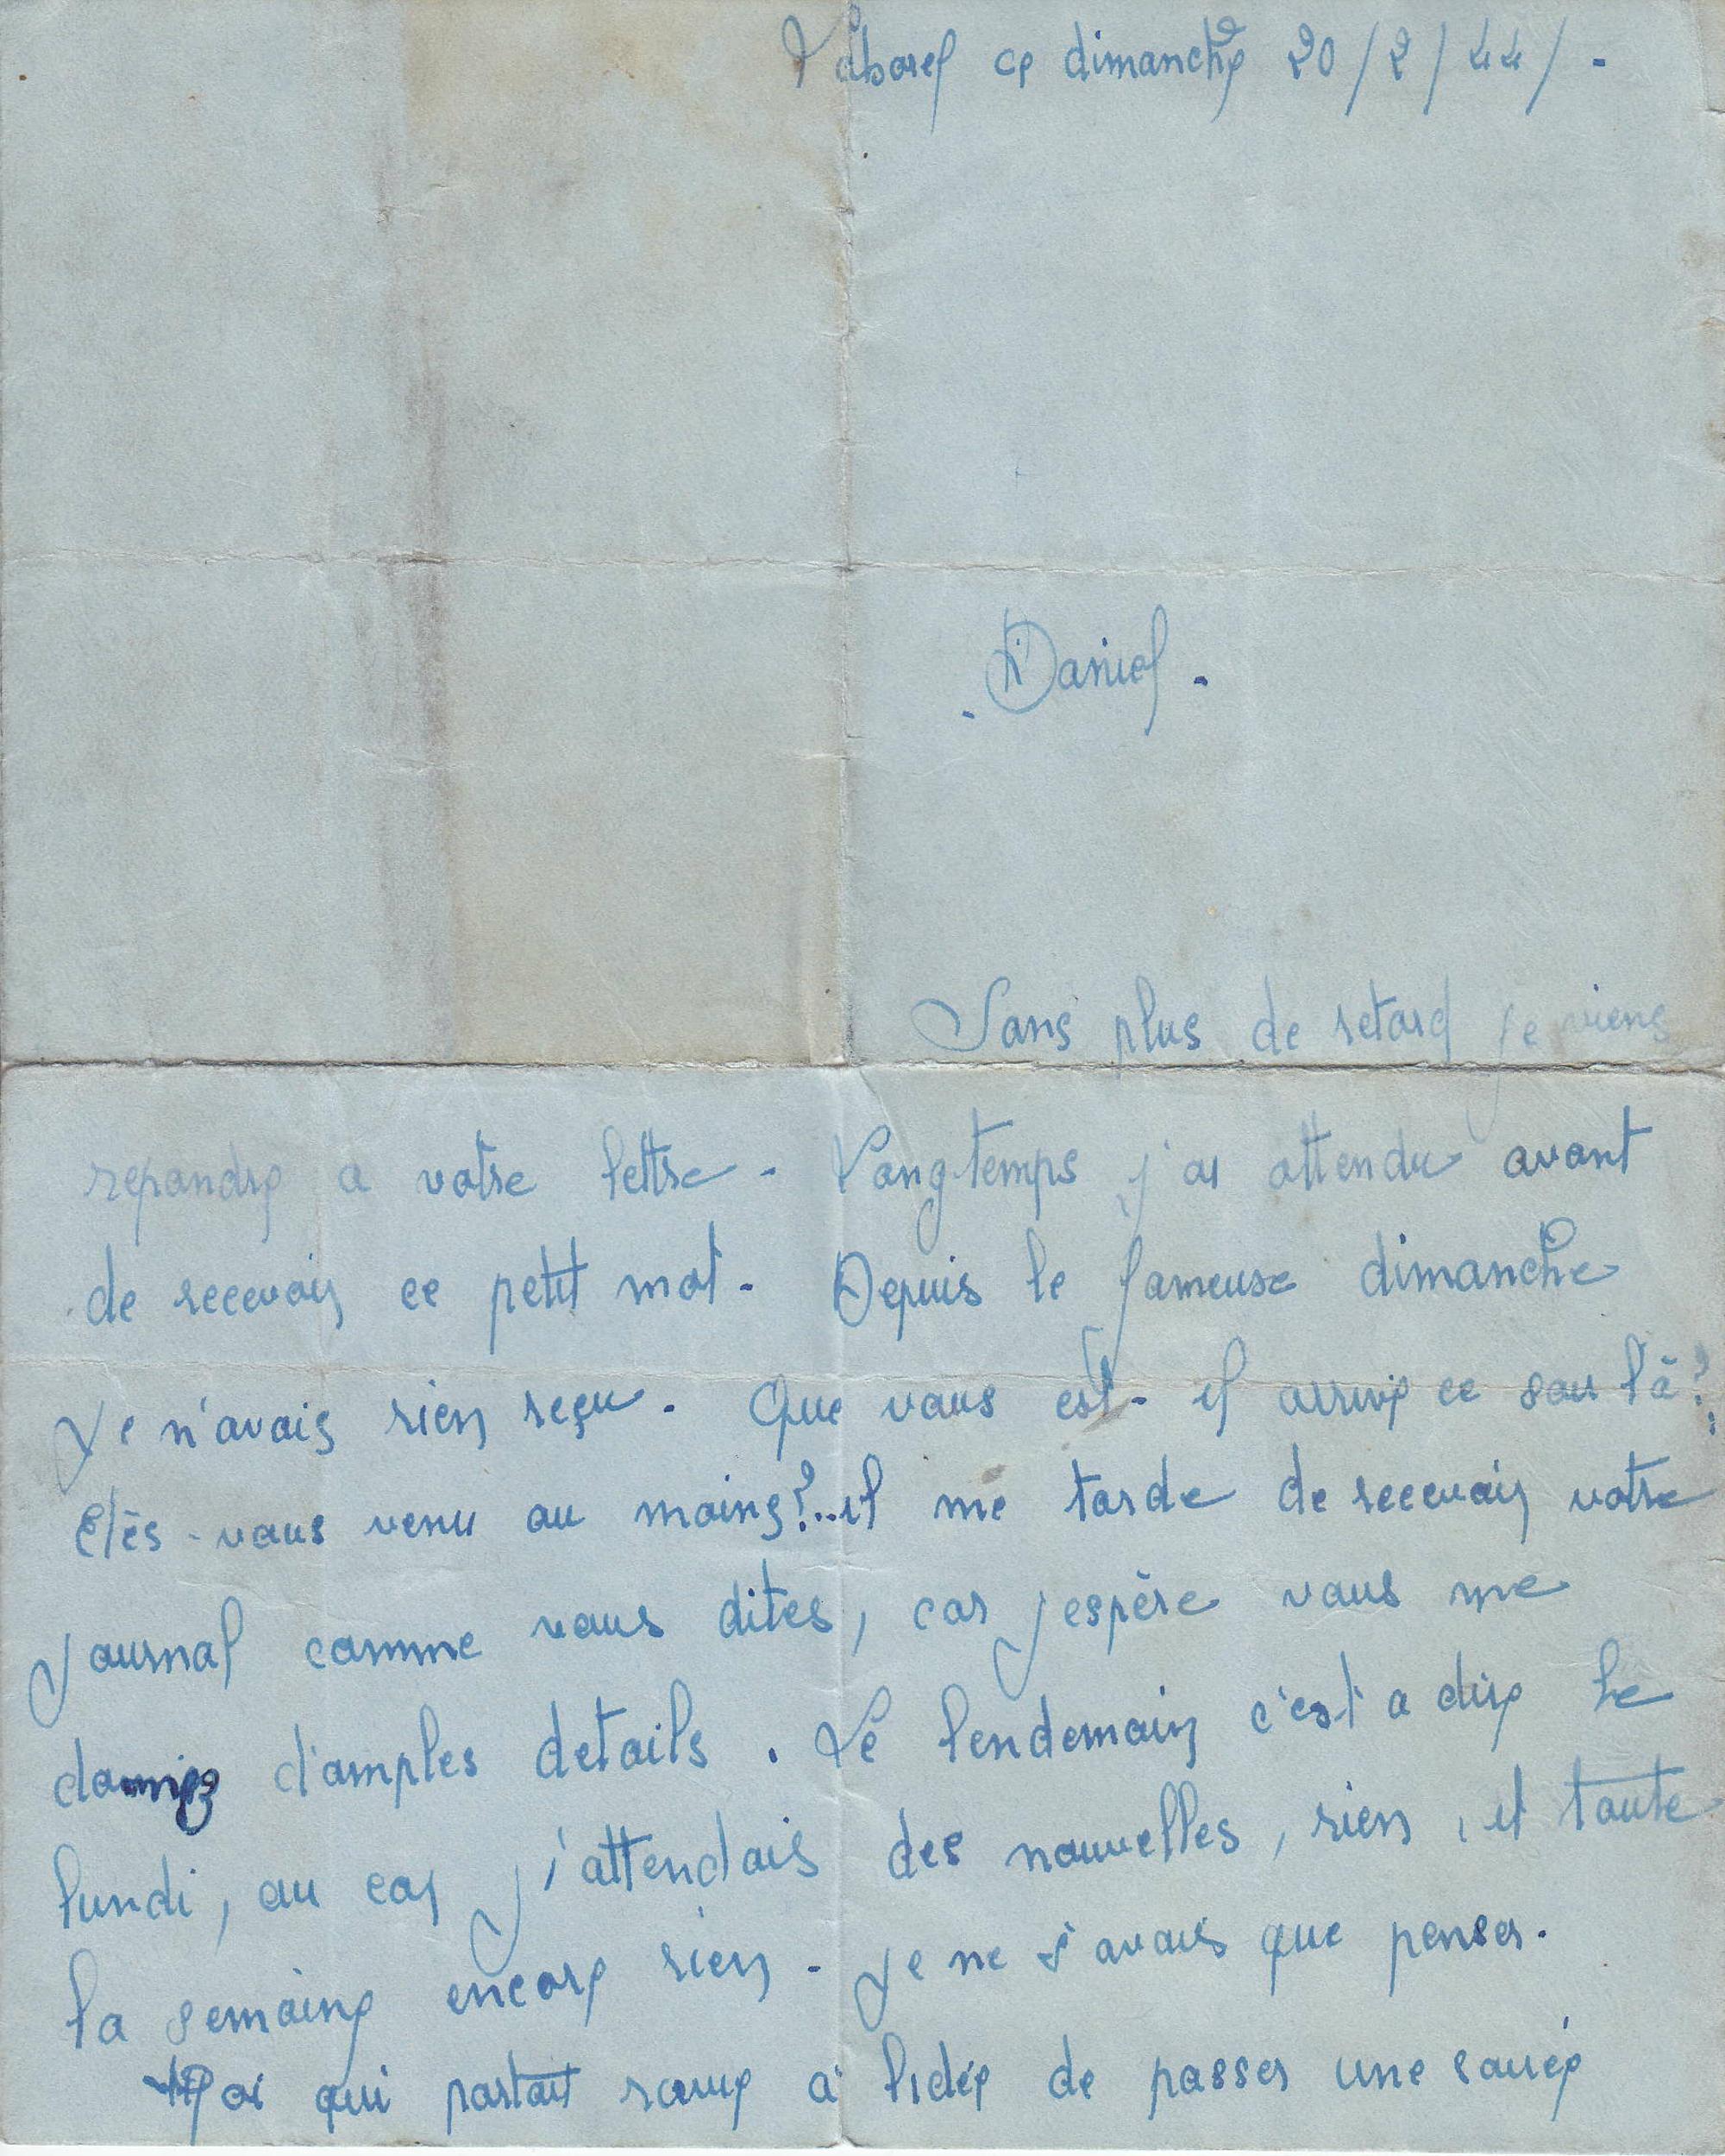 Laborel ce dimanche 20/2/44/.-
. Daniel .
Sans plus de retard je viens
repondre a votre lettre - Longtemps j'ai attendu avant
de recevoir ce petit mot - Depuis le fameuse dimanche
Je n'avais rien reçu . Que vous est-il arrivé ce soir là ?
Etês-vous venu au moins ?...il me tarde de recevoir votre
journal comme vous dites, car j'espère vous me
donnez d'amples details . Le lendemain c'est a dire le
lundi, au car j'attendais des nouvelles, rien, et toute
la semaine encore rien - Je ne s'avais que penser.
Moi qui partait ravie à l'idée de passer une soirée